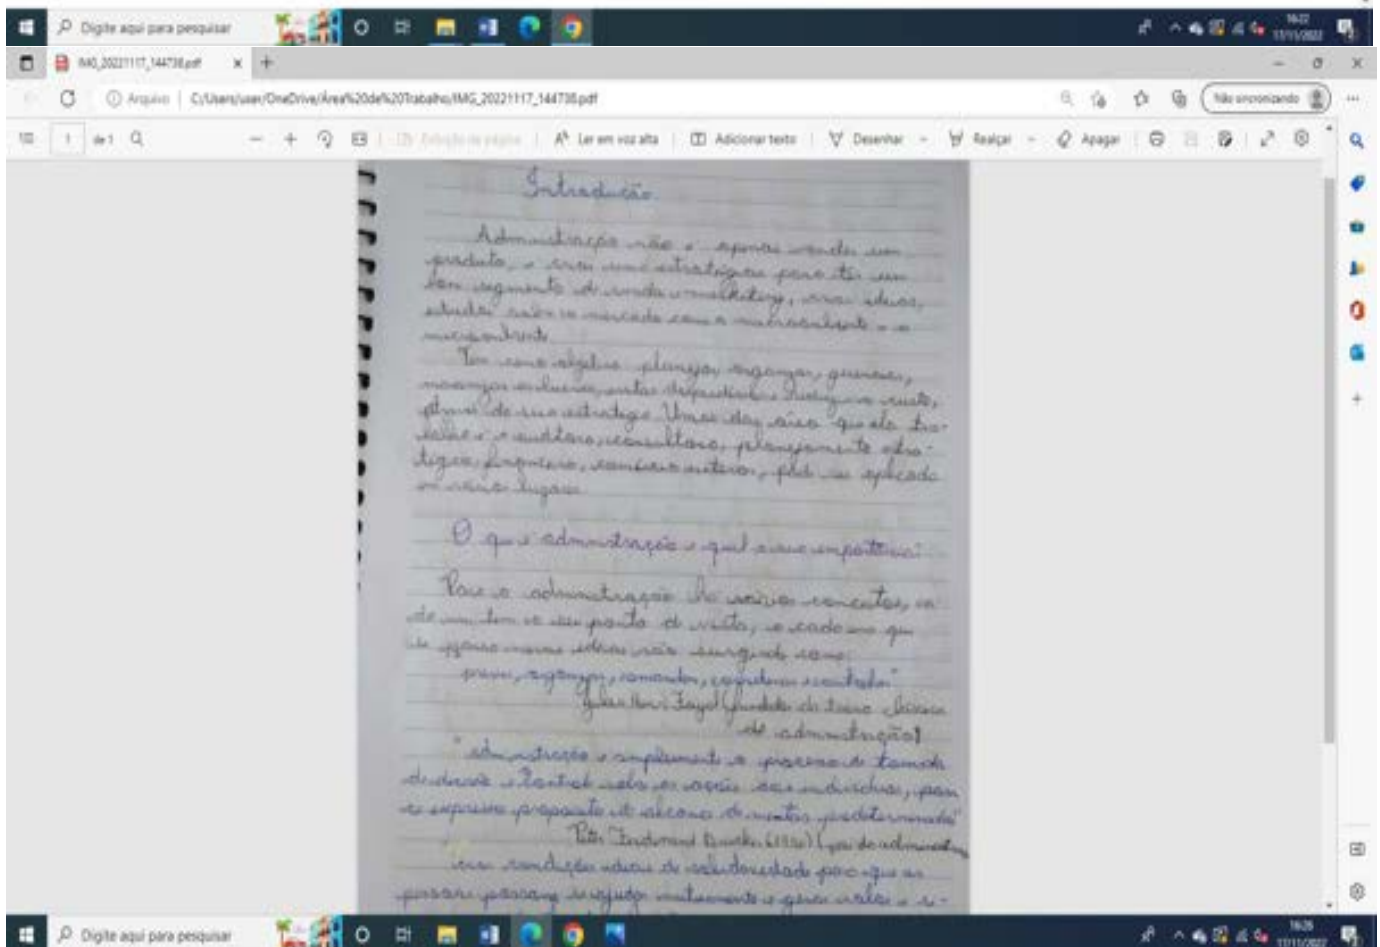 Digite aqui para pesquisar
16:22
17/11/2022
IMG_20221117_144738.pdf
Arquivo | C:/Users/user/OneDrive/Área%20de%20Trabalho/IMG_20221117_144738.pdf
Não sincronizando
1 de 1
Ler em voz alta | Adicionar texto | Desenhar | Realçar | Apagar
Introdução
Administração não é apenas vender um
produto, e criar uma estratégia para ter um
bom segmento de venda e marketing, criar ideias,
estudar sobre o mercado como o macroambiente e o
microambiente
Tem como objetivo planejar, organizar, gerenciar,
custo,
de sua estratégia Umas das áreas que ela tra-
balha é a auditoria, consultoria, planejamento estra-
tégico, financeiro, comércio exterior, pode ser aplicado
em vários lugares
O que é administração e qual a sua importância?
Para a administração há vários conceitos, ca-
da um tem o seu ponto de vista, e cada ano que
se passa novas ideias vão surgindo como:
prever, organizar, comandar, coordenar e controlar"
Jules Henri Fayol (fundador da teoria clássica
de administração)
"administração é simplesmente o processo de tomada
de decisão e controle sobre as ações dos indivíduos, para
o expresso propósito de alcance de metas predeterminadas"
Peter Ferdinand Drucker (pai da administração
condições ideais de solidariedade para que as
pessoas possam se ajudar mutuamente e gerar valor e
Digite aqui para pesquisar
16:26
17/11/2022